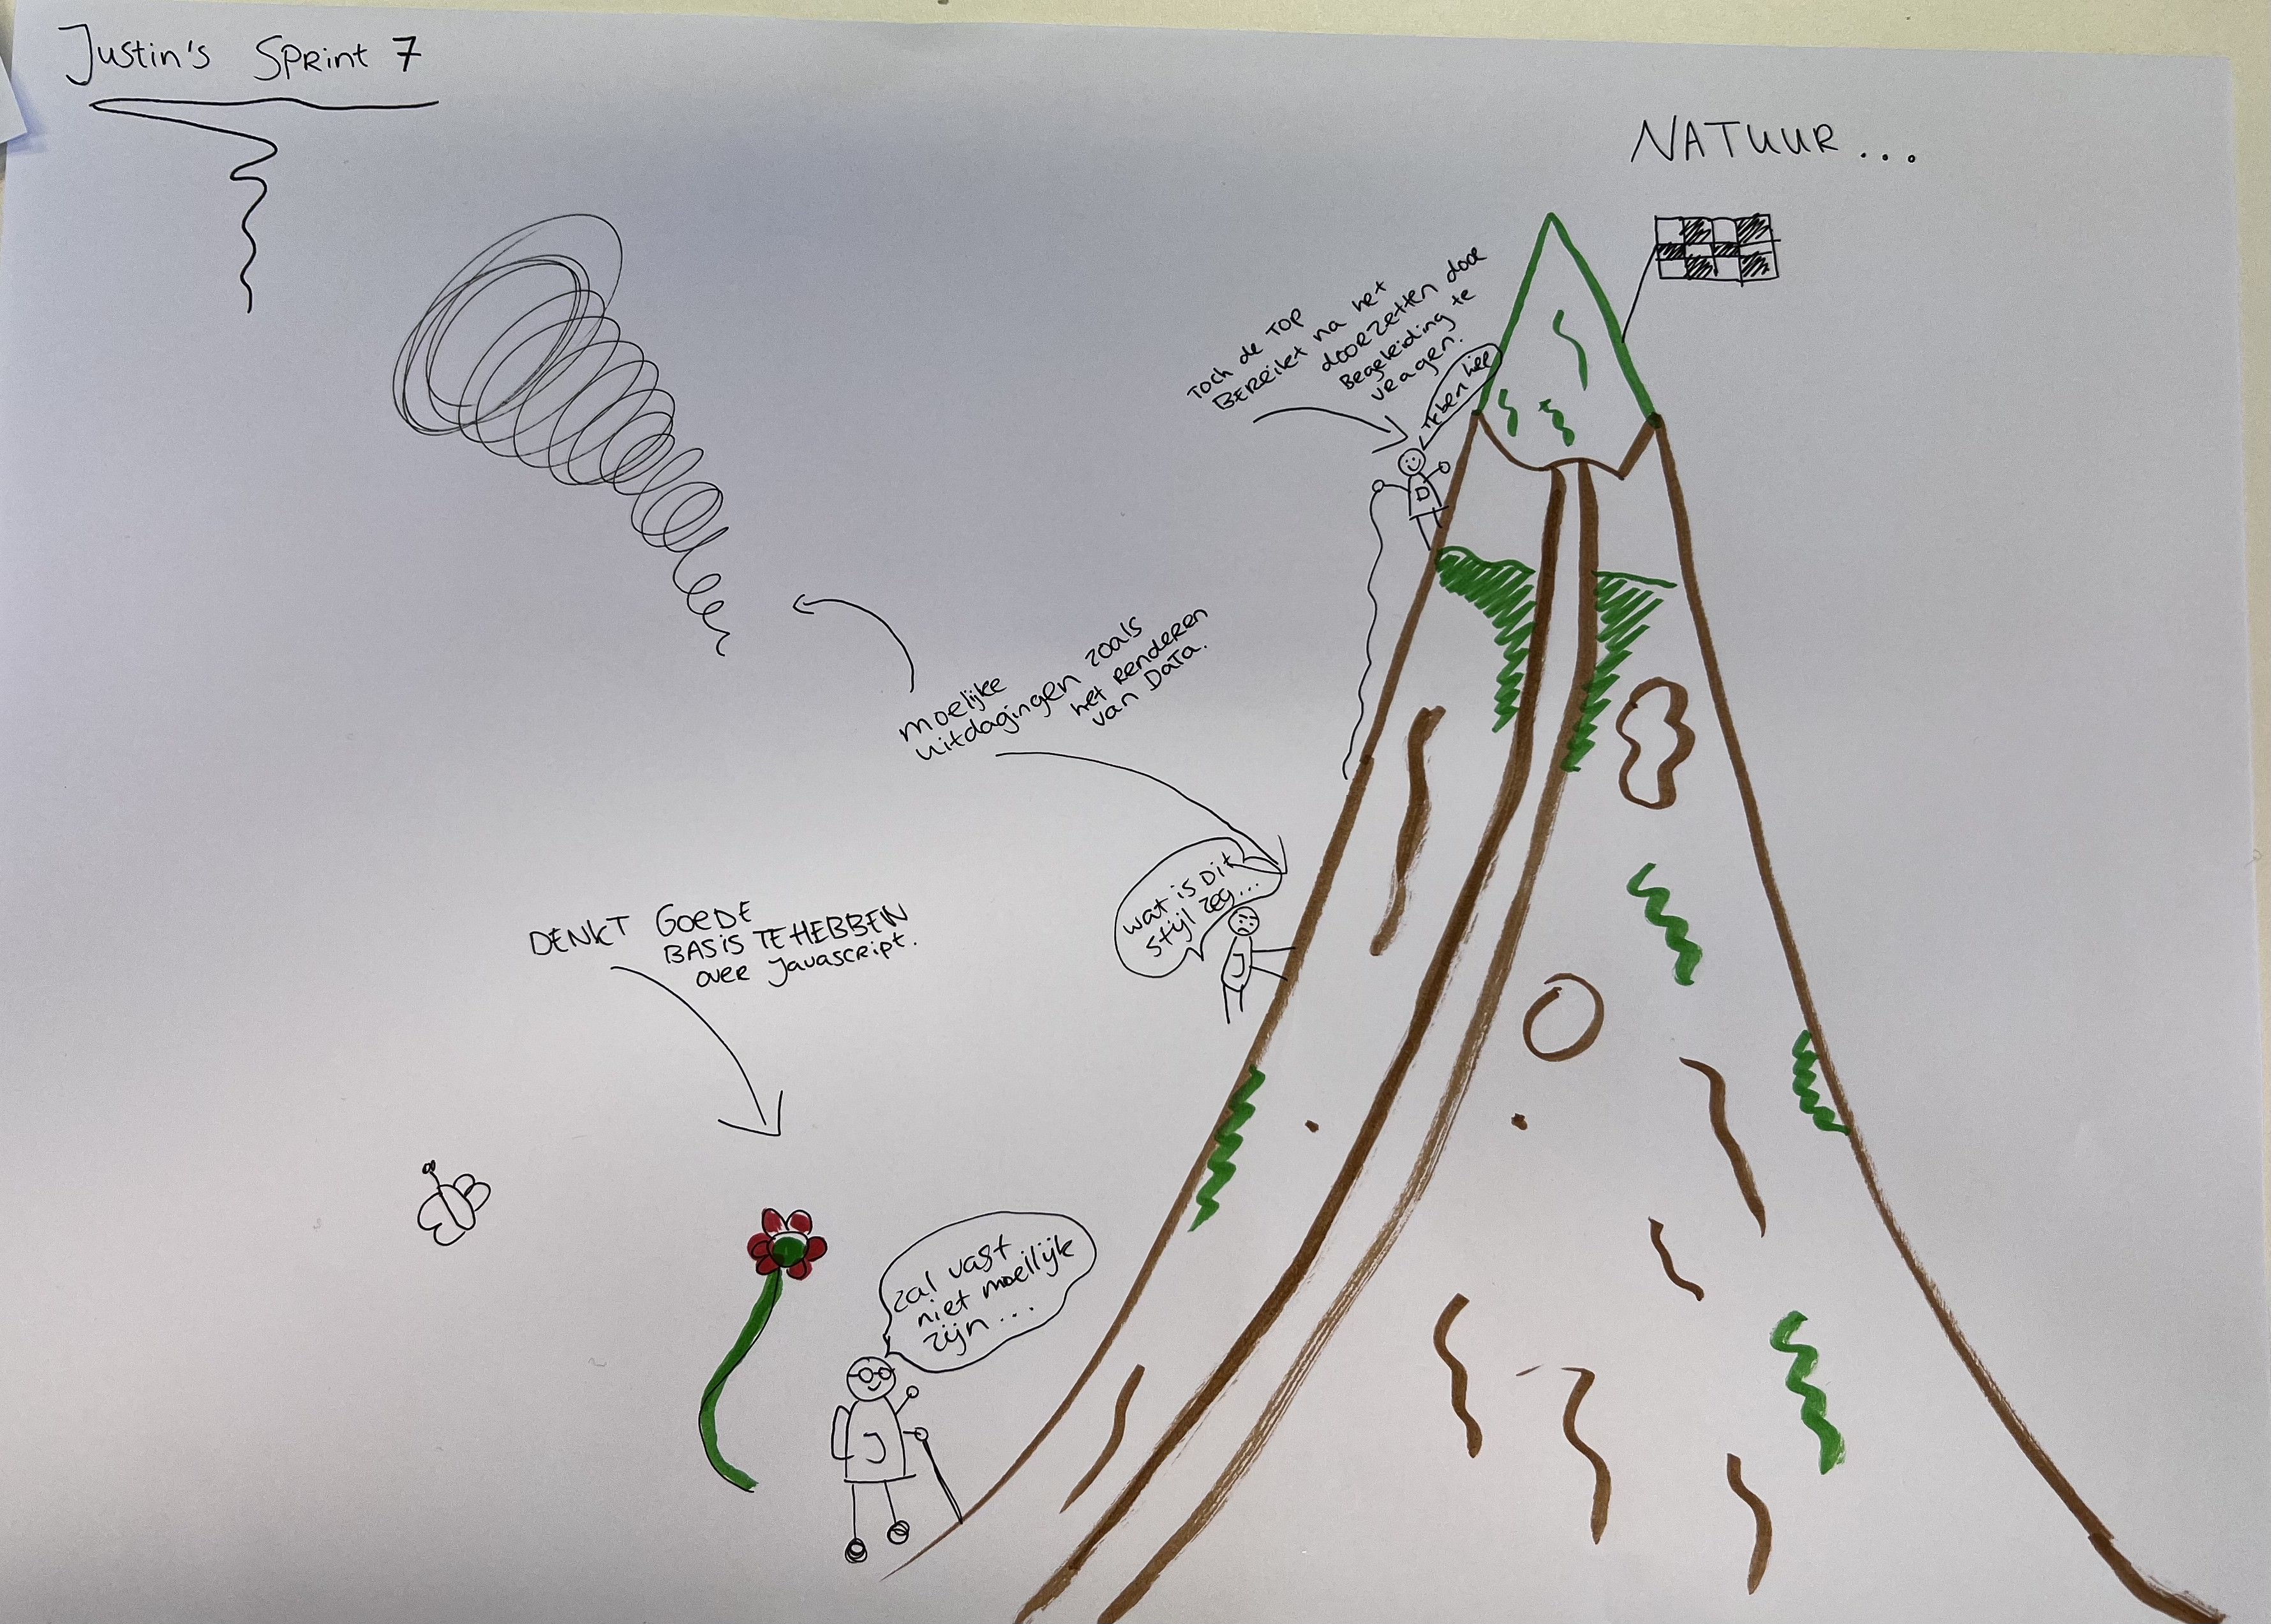 Justin's Sprint 7
NATUUR...
Toch de TOP
BEREikt na het
doorzetten door
Begeleiding te
vragen.
Ik ben hier
D
moeijke
uitdagingen zoals
het renderen
van DaTa.
wat is Dit
stijl zeg...
J
DENKT GOEDE
BASIS TE HEBBEN
over Javascript.
zal vast
niet moeilijk
zijn...
J